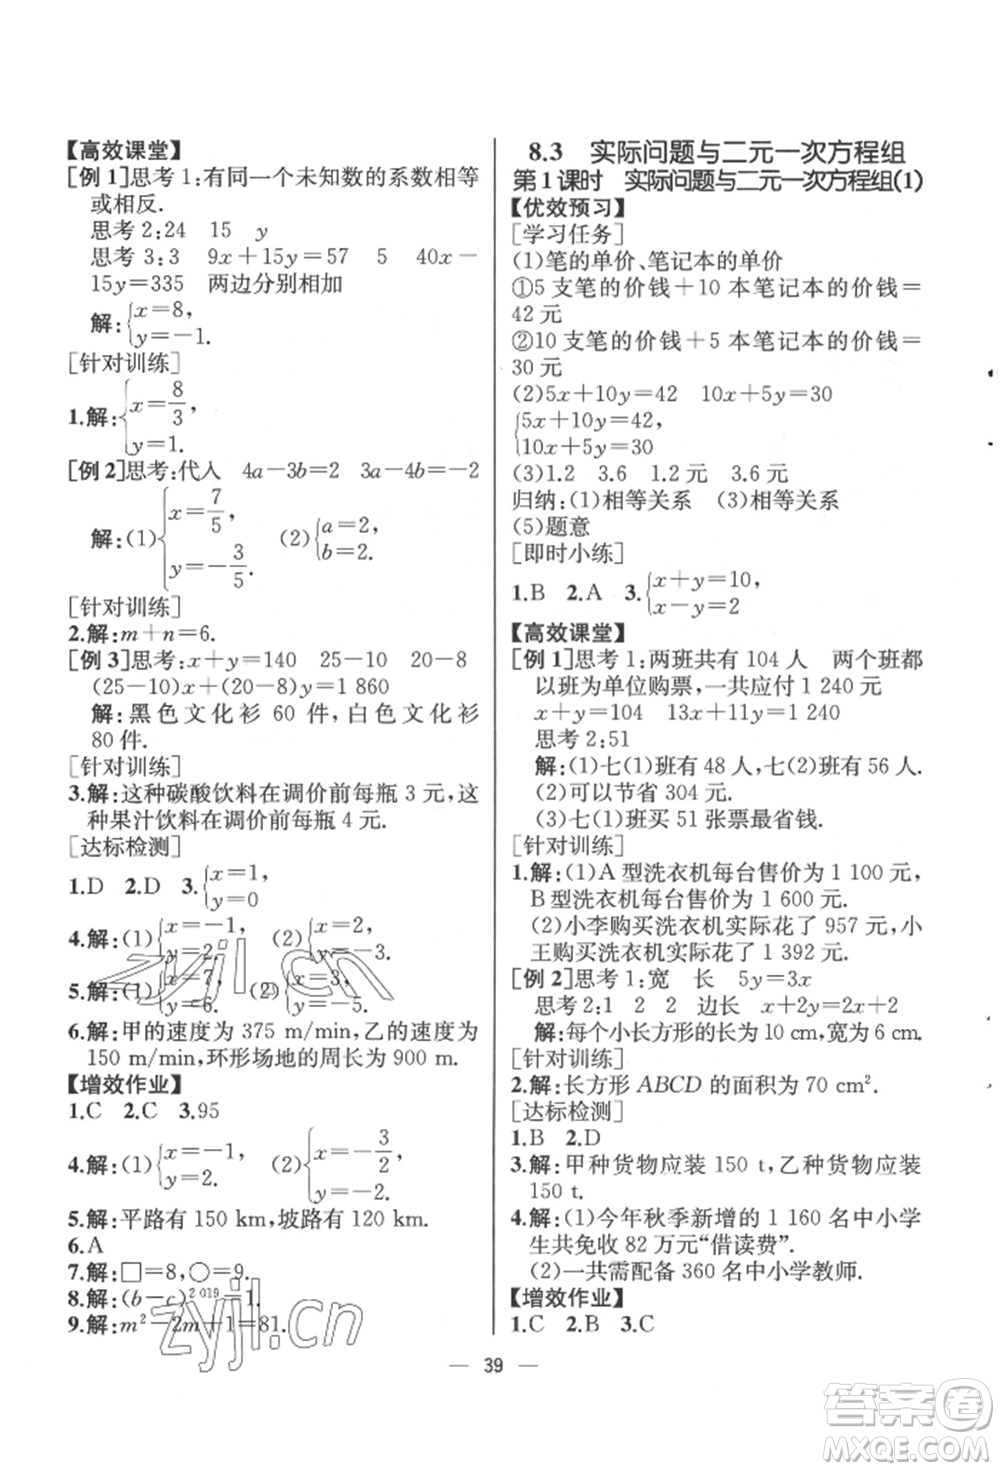 【高效课堂】
[例 1]思考 1:有同一个未知数的系数相等
或相反.
思考 2:24 15 y
思考 3:3 9x+15y=57 5 40x-
15y=335 两边分别相加
解:{x=8,
y=-1.
[针对训练]
1.解:{x=8/3,
y=1.
[例 2]思考:代入 4a-3b=2 3a-4b=-2
解:(1){x=7/5, (2){a=2,
y=-3/5. b=2.
[针对训练]
2.解:m+n=6.
[例 3]思考:x+y=140 25-10 20-8
(25-10)x+(20-8)y=1 860
解:黑色文化衫 60 件,白色文化衫
80 件.
[针对训练]
3.解:这种碳酸饮料在调价前每瓶 3 元,这
种果汁饮料在调价前每瓶 4 元.
[达标检测]
1.D 2.D 3.{x=1,
y=0
4.解:(1){x=-1, (2){x=2,
y=2.
5.解:(1) (2)
y=6. y=-5.
6.解:甲的速度为 375 m/min,乙的速度为
150 m/min,环形场地的周长为 900 m.
【增效作业】
1.C 2.C 3.95
4.解:(1){x=-1, (2){x=-3/2,
y=2. y=-2.
5.解:平路有 150 km,坡路有 120 km.
6.A
7.解:□=8,○=9.
8.解:(b-c)^2 019=1.
9.解:m²-2m+1=81.
8.3 实际问题与二元一次方程组
第 1 课时 实际问题与二元一次方程组(1)
【优效预习】
[学习任务]
(1)笔的单价、笔记本的单价
①5 支笔的价钱+10 本笔记本的价钱=
42 元
②10 支笔的价钱+5 本笔记本的价钱=
30 元
(2)5x+10y=42 10x+5y=30
{5x+10y=42,
10x+5y=30
(3)1.2 3.6 1.2 元 3.6 元
归纳:(1)相等关系 (3)相等关系
(5)题意
[即时小练]
1.B 2.A 3.{x+y=10,
x-y=2
【高效课堂】
[例 1]思考 1:两班共有 104 人 两个班都
以班为单位购票,一共应付 1 240 元
x+y=104 13x+11y=1 240
思考 2:51
解:(1)七(1)班有 48 人,七(2)班有 56 人.
(2)可以节省 304 元.
(3)七(1)班买 51 张票最省钱.
[针对训练]
1.解:(1)A 型洗衣机每台售价为 1 100 元,
B 型洗衣机每台售价为 1 600 元.
(2)小李购买洗衣机实际花了 957 元,小
王购买洗衣机实际花了 1 392 元.
[例 2]思考 1:宽 长 5y=3x
思考 2:1 2 2 边长 x+2y=2x+2
解:每个小长方形的长为 10 cm,宽为 6 cm.
[针对训练]
2.解:长方形 ABCD 的面积为 70 cm².
[达标检测]
1.B 2.D
3.解:甲种货物应装 150 t,乙种货物应装
150 t.
4.解:(1)今年秋季新增的 1 160 名中小学
生共免收 82 万元“借读费”.
(2)一共需配备 360 名中小学教师.
【增效作业】
1.C 2.B 3.C
— 39 —
zyjl.cn
zyjl.cn
答案圈
MXQE.COM